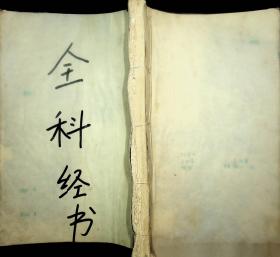 全科经书